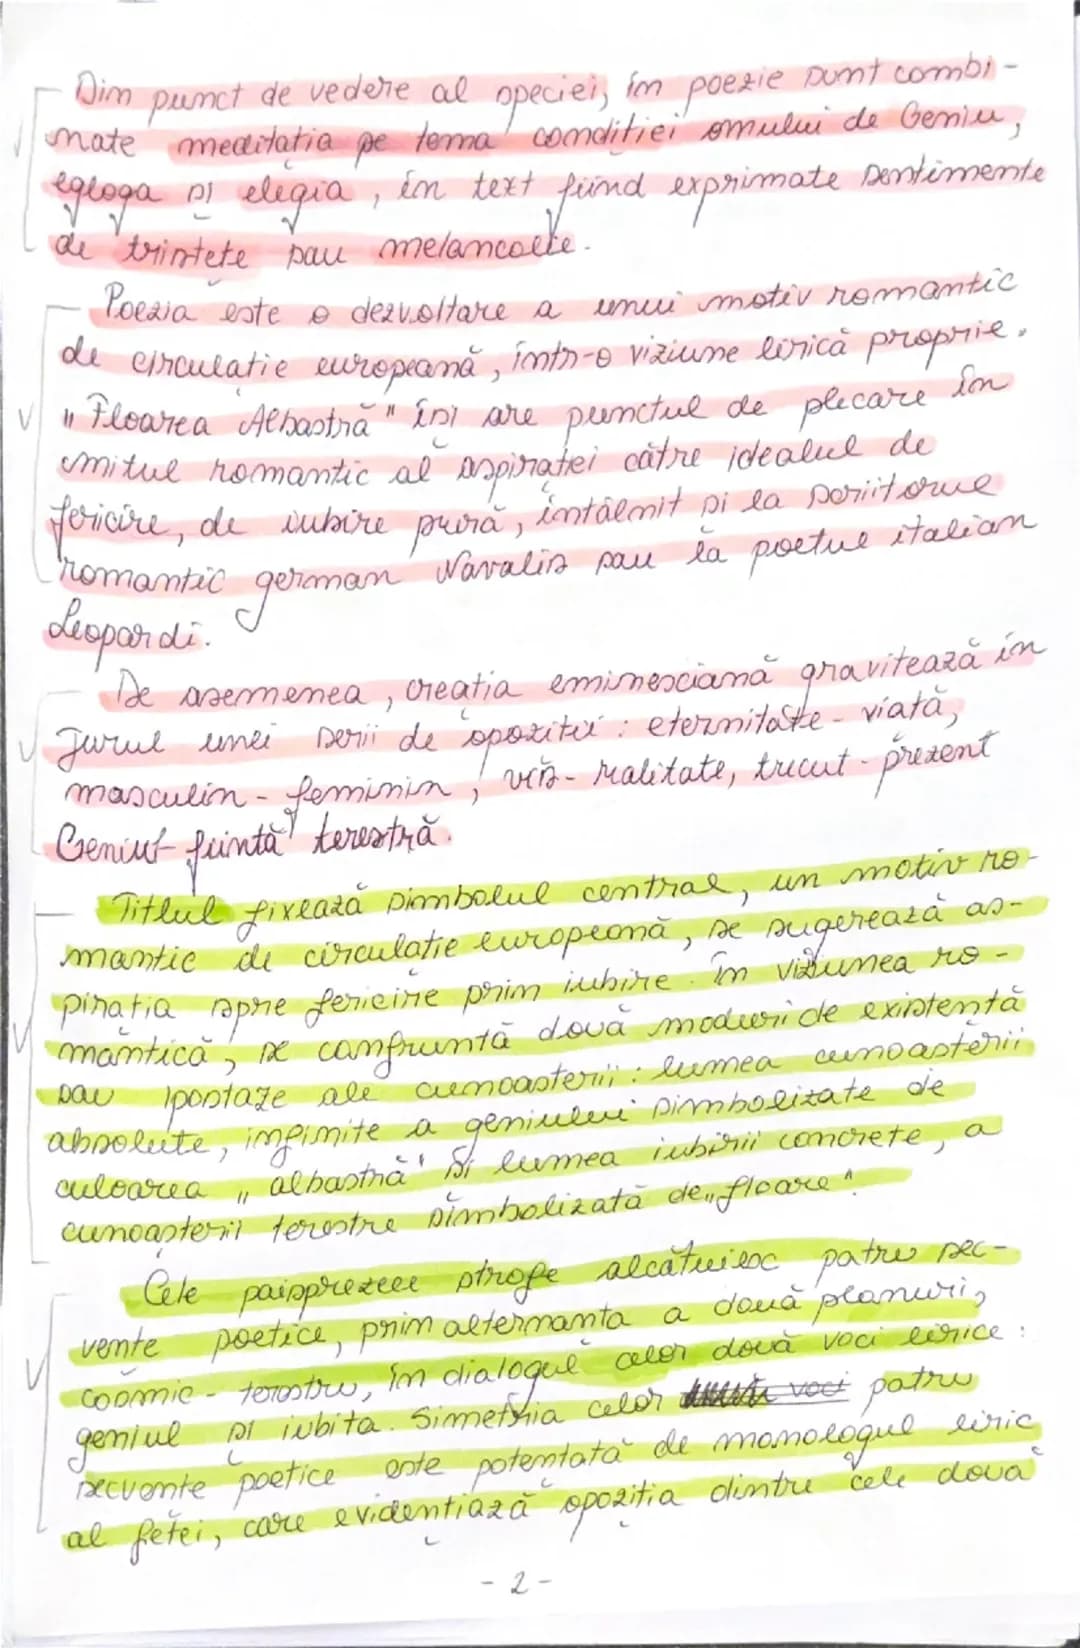 Din punct de vedere al speciei, în poezie sunt combi-
nate meditația pe tema condiției omului de Geniu,
egloga și elegia, în text fiind exprimate sentimente
de tristețe sau melancolie.
Poezia este o dezvoltare a unui motiv romantic
de circulație europeană, într-o viziune lirică proprie.
"Floarea Albastră" își are punctul de plecare în
mitul romantic al aspirației către idealul de
fericire, de iubire pură, întâlnit și la scriitorul
romantic german Navalis sau la poetul italian
Leopardi.
De asemenea, creația eminesciană gravitează în
Jurul unei serii de opoziții: eternitate - viață,
masculin - feminin, vis - realitate, trecut - prezent
Geniul- ființă terestră.
Titlul fixează simbolul central, un motiv ro-
mantic de circulație europeană, se sugerează as-
pirația spre fericire prin iubire. În viziunea ro-
mantică, se confruntă două moduri de existență
sau ipostaze ale cunoașterii: lumea cunoașterii
absolute, infinite a geniului simbolizate de
culoarea "albastră" și lumea iubirii concrete, a
cunoașterii terestre simbolizată de "floare".
Cele paisprezece strofe alcătuiesc patru sec-
vente poetice, prin alternanta a două planuri,
cosmic - terestru, în dialogul celor două voci lirice:
geniul și iubita. Simetria celor voci patru
secvente poetice este potentată de monologul liric
al fetei, care evidențiază opoziția dintre cele două
- 2 -